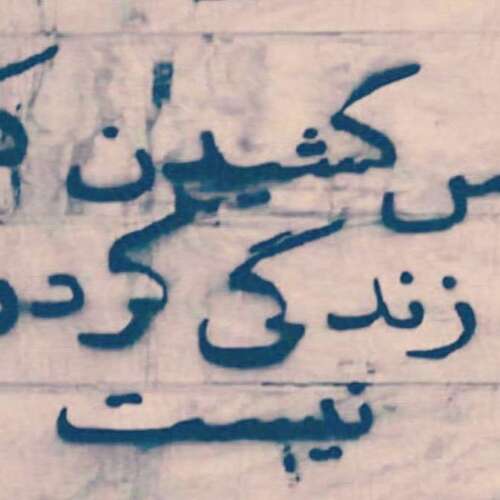 کشیدن
زندگی کرد
نیست